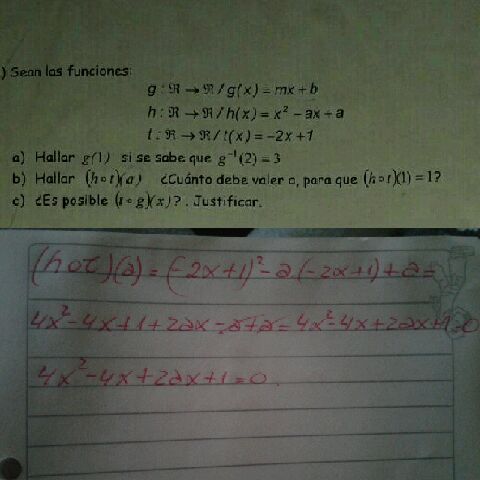 ) Sean las funciones:
g : ℜ → ℜ / g(x) = mx + b
h : ℜ → ℜ / h(x) = x² − ax + a
t : ℜ → ℜ / t(x) = −2x + 1
a) Hallar g(1) si se sabe que g⁻¹(2) = 3
b) Hallar (h∘t)(a) ¿Cuánto debe valer a, para que (h∘t)(1) = 1?
c) ¿Es posible (t∘g)(x)?. Justificar.
(hot)(a) = (-2x+1)² - a(-2x+1) + a =
4x² - 4x + 1 + 2ax - a + a = 4x² - 4x + 2ax + 1 = 0
4x² - 4x + 2ax + 1 = 0.